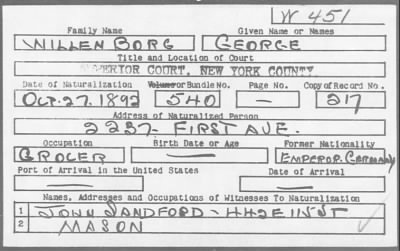 W 451
Family Name Given Name or Names
WILLENBORG GEORGE
Title and Location of Court
SUPERIOR COURT, NEW YORK COUNTY
Date of Naturalization Volume or Bundle No. Page No. Copy of Record No.
OCT. 27. 1892 540 — 217
Address of Naturalized Person
2257 - FIRST AVE.
Occupation Birth Date or Age Former Nationality
GROCER — EMPEROR. GERMANY
Port of Arrival in the United States Date of Arrival
— —
Names, Addresses and Occupations of Witnesses To Naturalization
1 JOHN SANDFORD - 442 E 115 ST
2 MASON